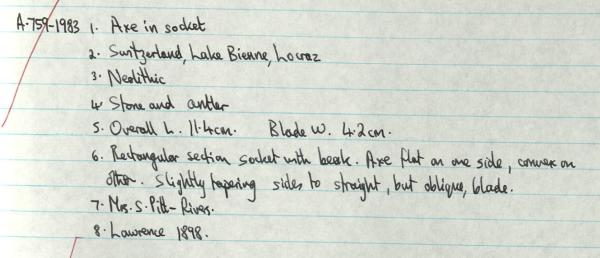 A.759-1983 1. Axe in socket
2. Switzerland, Lake Bienne, Locraz
3. Neolithic
4. Stone and antler
5. Overall L. 11.4cm. Blade W. 4.2cm.
6. Rectangular section socket with beak. Axe flat on one side, convex on
other. Slightly tapering sides to straight, but oblique, blade.
7. Mrs. S. Pitt-Rivers.
8. Lawrence 1898.